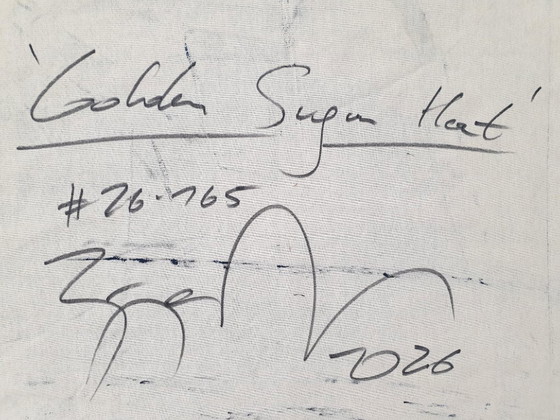 'Golden Sugar Hat'
#26-165
2026